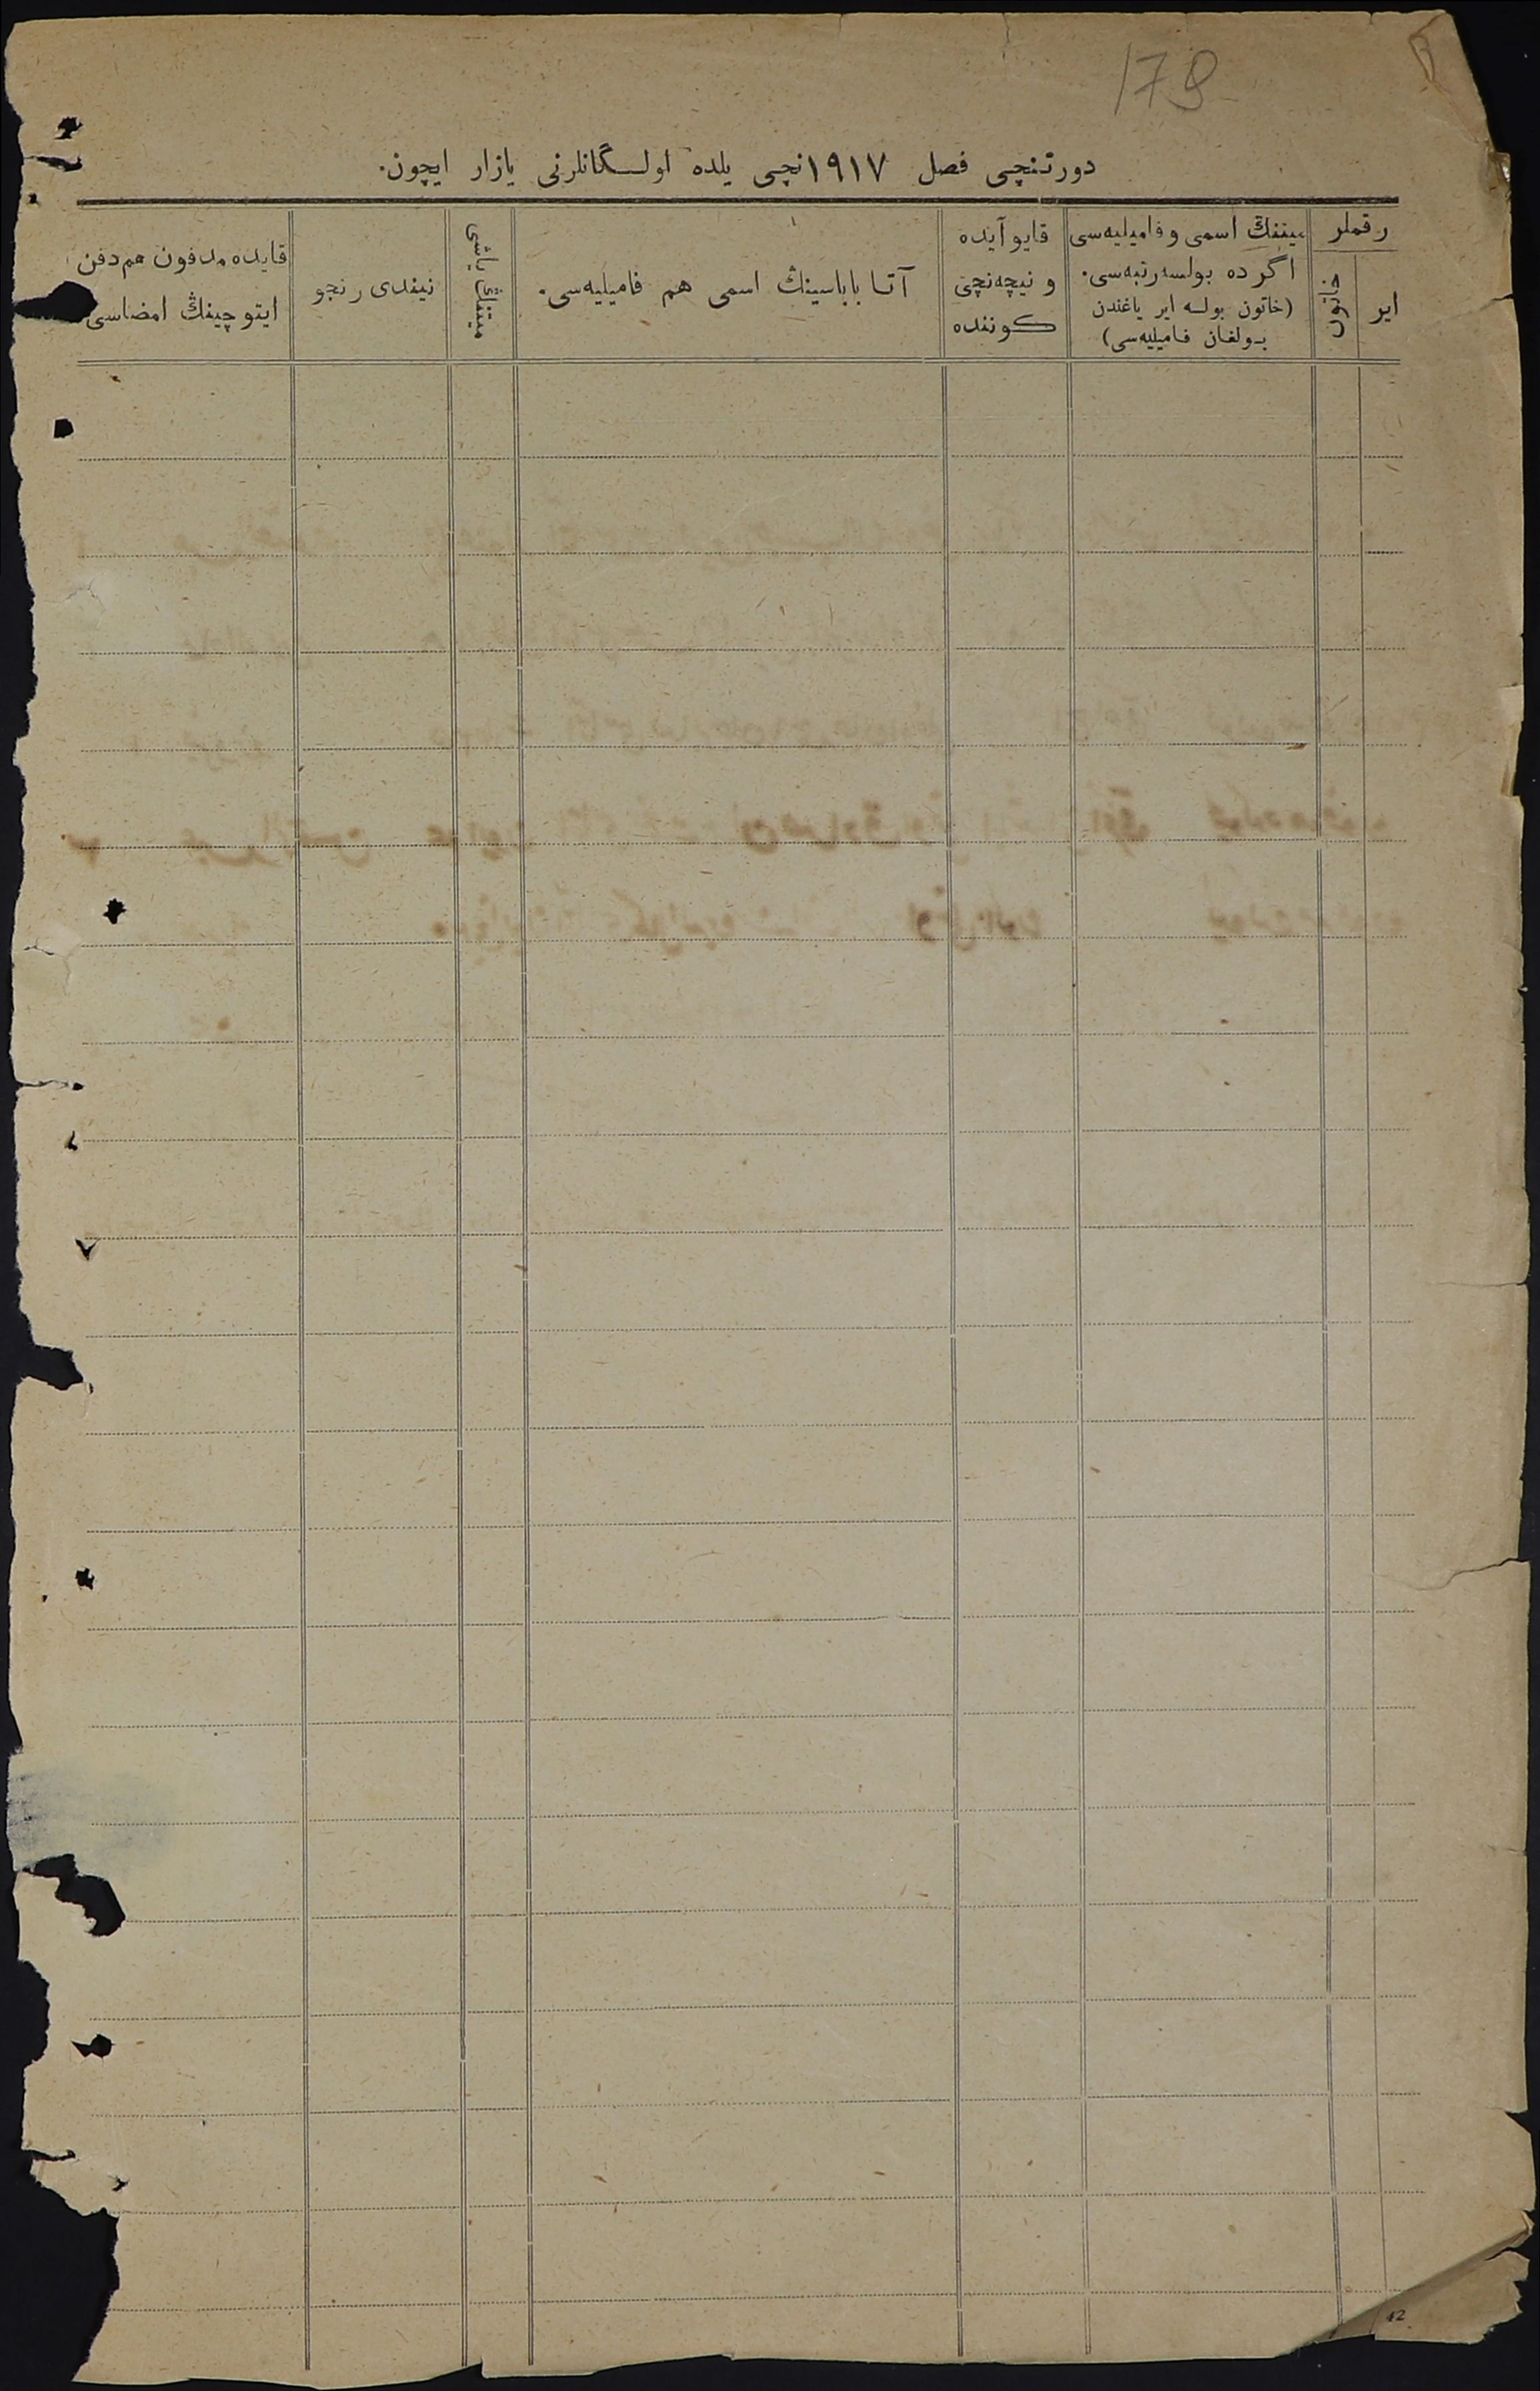 178
دورتنچی فصل ١٩١٧نچی يلده اولـگانلرنی يازار ايچون.
رقملر
اير
خاتون
ميتنڭ اسمی و فاميليه‌سی
اگر ده بولسه رتبه‌سی.
(خاتون بولسه اير ياغندن
بولغان فاميليه‌سی)
قايو آيده
و نيچه‌نچی
كوننده
آتا باباسينڭ اسمی هم فاميليه‌سی.
ميتنڭ ياشی
نيندی رنجو
قايده مدفون هم دفن
ايتوچينڭ امضاسی
42